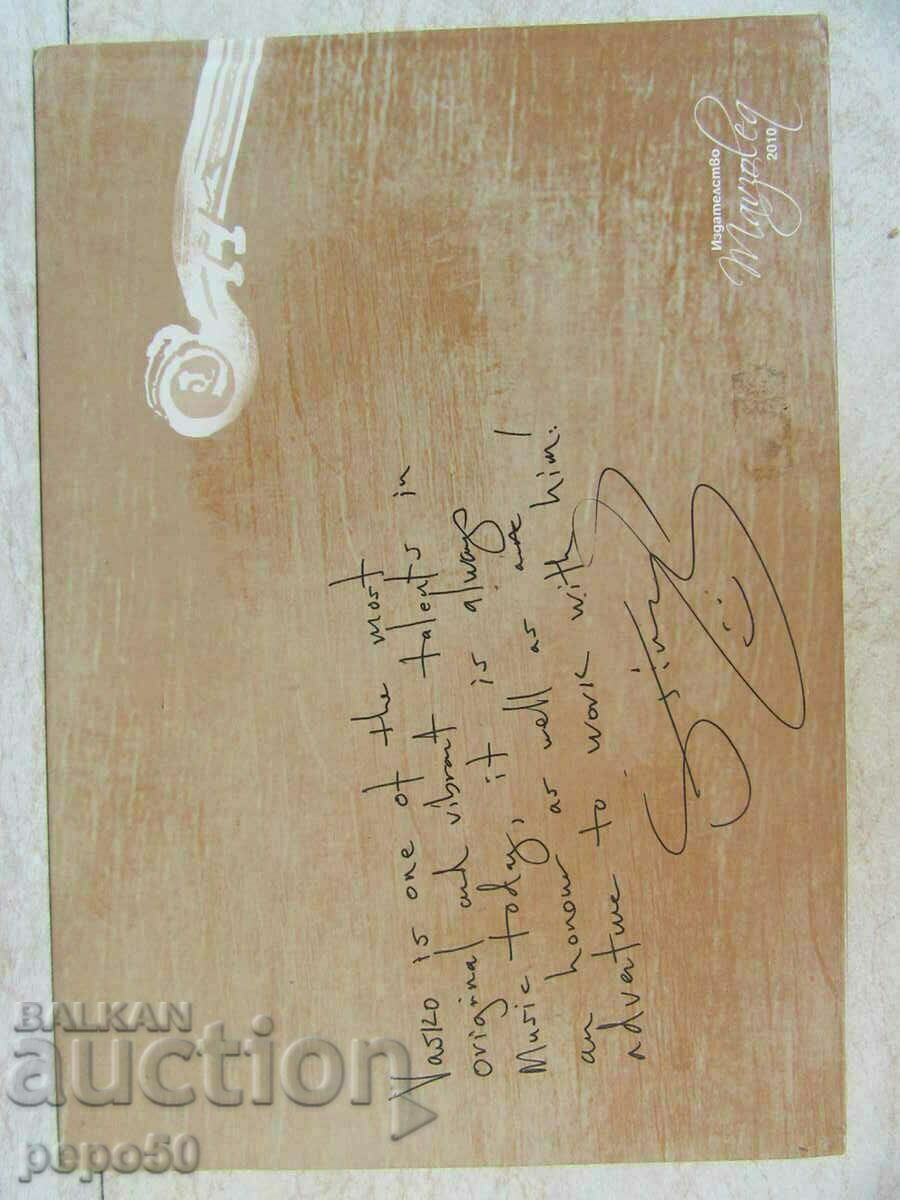 Издателство
2010
Vasko is one of the most
original and vibrant talents in
Music today, it is always
an honour as well as an
adventure to work with him!
BALKAN
auction
pepo50